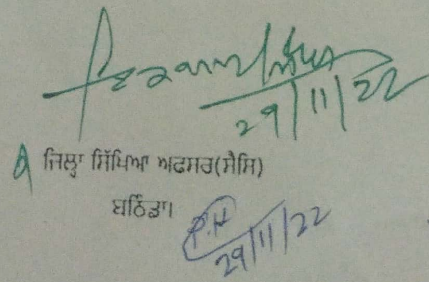 29/11/22
ਜਿਲ੍ਹਾ ਸਿੱਖਿਆ ਅਫਸਰ(ਸੈਸਿ)
ਬਠਿੰਡਾ।
29/11/22